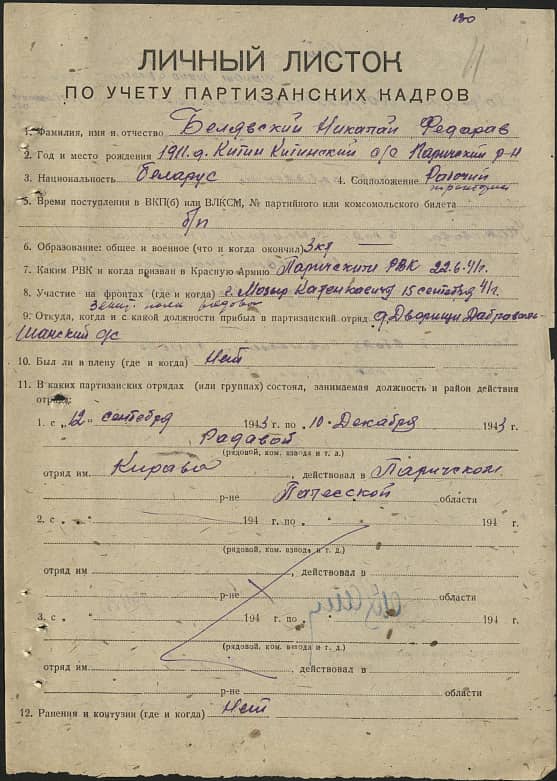 130
11
ЛИЧНЫЙ ЛИСТОК
ПО УЧЕТУ ПАРТИЗАНСКИХ КАДРОВ
1. Фамилия, имя и отчество Белявский Микапай Федарав
2. Год и место рождения 1911. д. Китин Китинский с/с Паричский р-н
3. Национальность Беларус 4. Соцположение Рабочий
5. Время поступления в ВКП(б) или ВЛКСМ, № партийного или комсомольского билета
б/п
6. Образование: общее и военное (что и когда окончил) 3 кл —
7. Каким РВК и когда призван в Красную Армию Паричскити РВК 22.6.41г.
8. Участие на фронтах (где и когда) г. Мозыр 15 сентебря 41г.
рядовой
9. Откуда, когда и с какой должности прибыл в партизанский отряд д. Дворищи
с/с
10. Был ли в плену (где и когда) Нет
11. В каких партизанских отрядах (или группах) состоял, занимаемая должность и район действия
отряда:
1. с „12" сентебря 1943 г. по 10. Декабря 1943 г.
Радавой
(рядовой, ком. взвода и т. д.)
отряд им. Кирава, действовал в Паричском
р-не Палесской области
2. с „ " 194 г. по „ " 194 г.
(рядовой, ком. взвода и т. д.)
отряд им , действовал в
р-не области
3. с „ " 194 г. по „ " 194 г.
(рядовой, ком. взвода и т. д.)
отряд им. , действовал в
р-не области
12. Ранения и контузии (где и когда) Нет